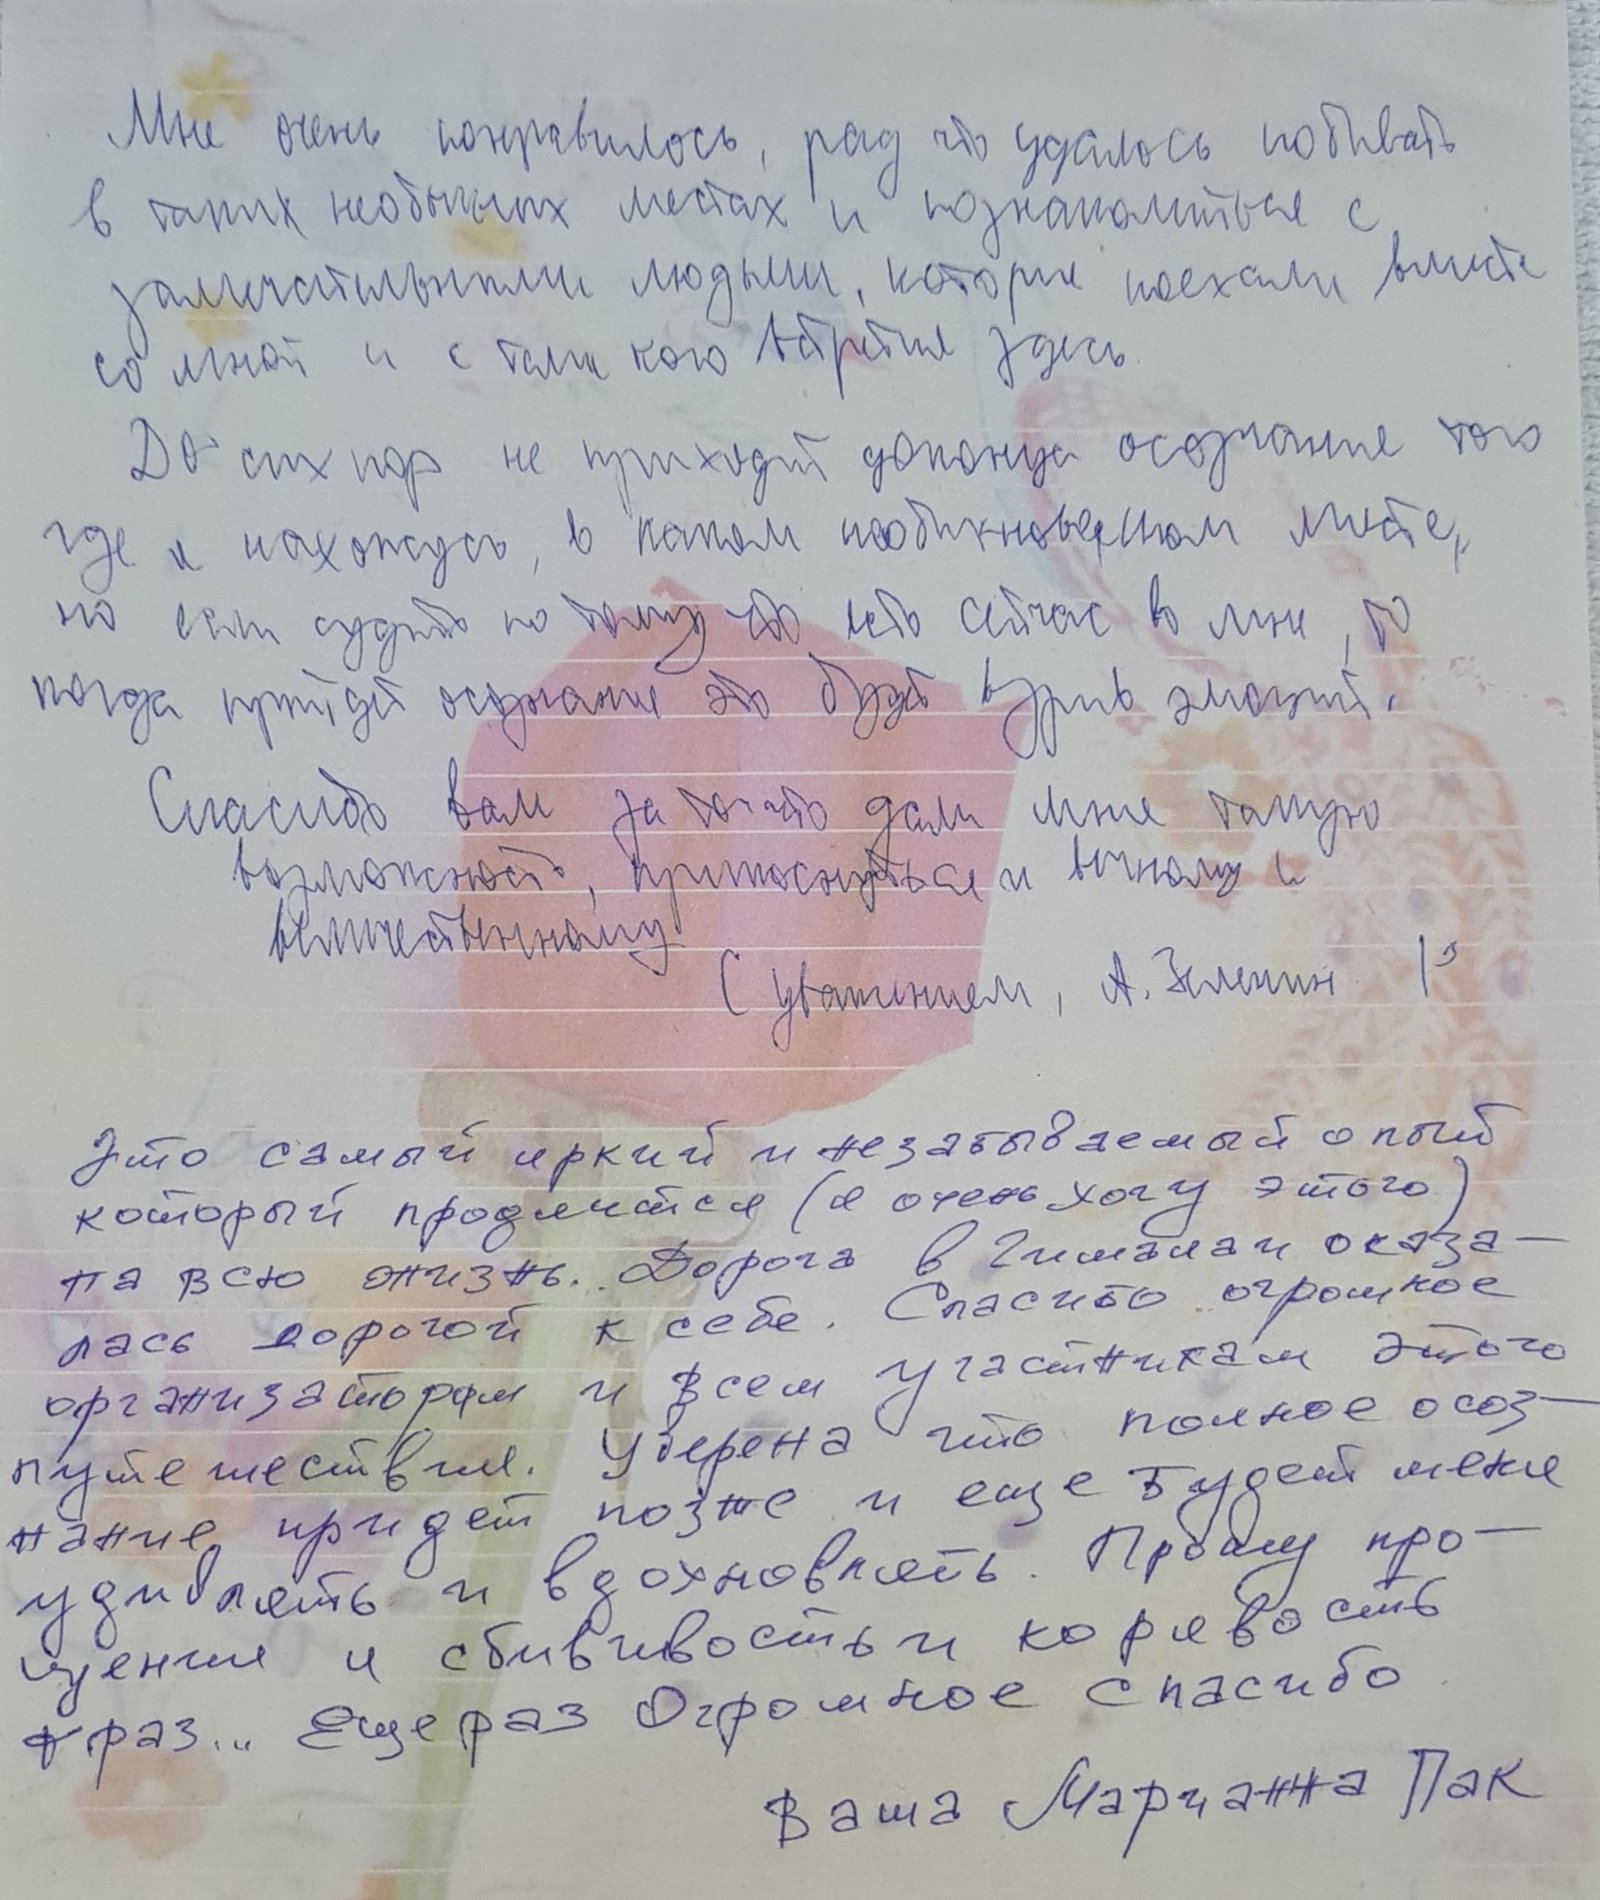 Мне очень понравилось, рад что удалось побывать
в таких необычных местах и познакомиться с
замечательными людьми, которые поехали вместе
со мной и с теми кого встретил здесь.
До сих пор не приходит до конца осознание того
где я нахожусь, в каком необыкновенном месте,
но если судить по тому что есть сейчас во мне, то
когда прийдет осознание это будет взрыв эмоций.
Спасибо вам за то что дали мне такую
возможность, прикоснуться к вечному и
величественному
С уважением, А. Зеленин
Это самый яркий и незабываемый опыт
который продлится (я очень хочу этого)
на всю жизнь... Дорога в Гималаи оказа-
лась дорогой к себе. Спасибо огромное
организаторам и всем участникам этого
путешествия. Уверена что полное осоз-
нание придет позже и еще будет меня
удивлять и вдохновлять. Прошу про-
щения и сбивчивость и корявость
фраз... Еще раз Огромное спасибо.
Ваша Марианна Пак